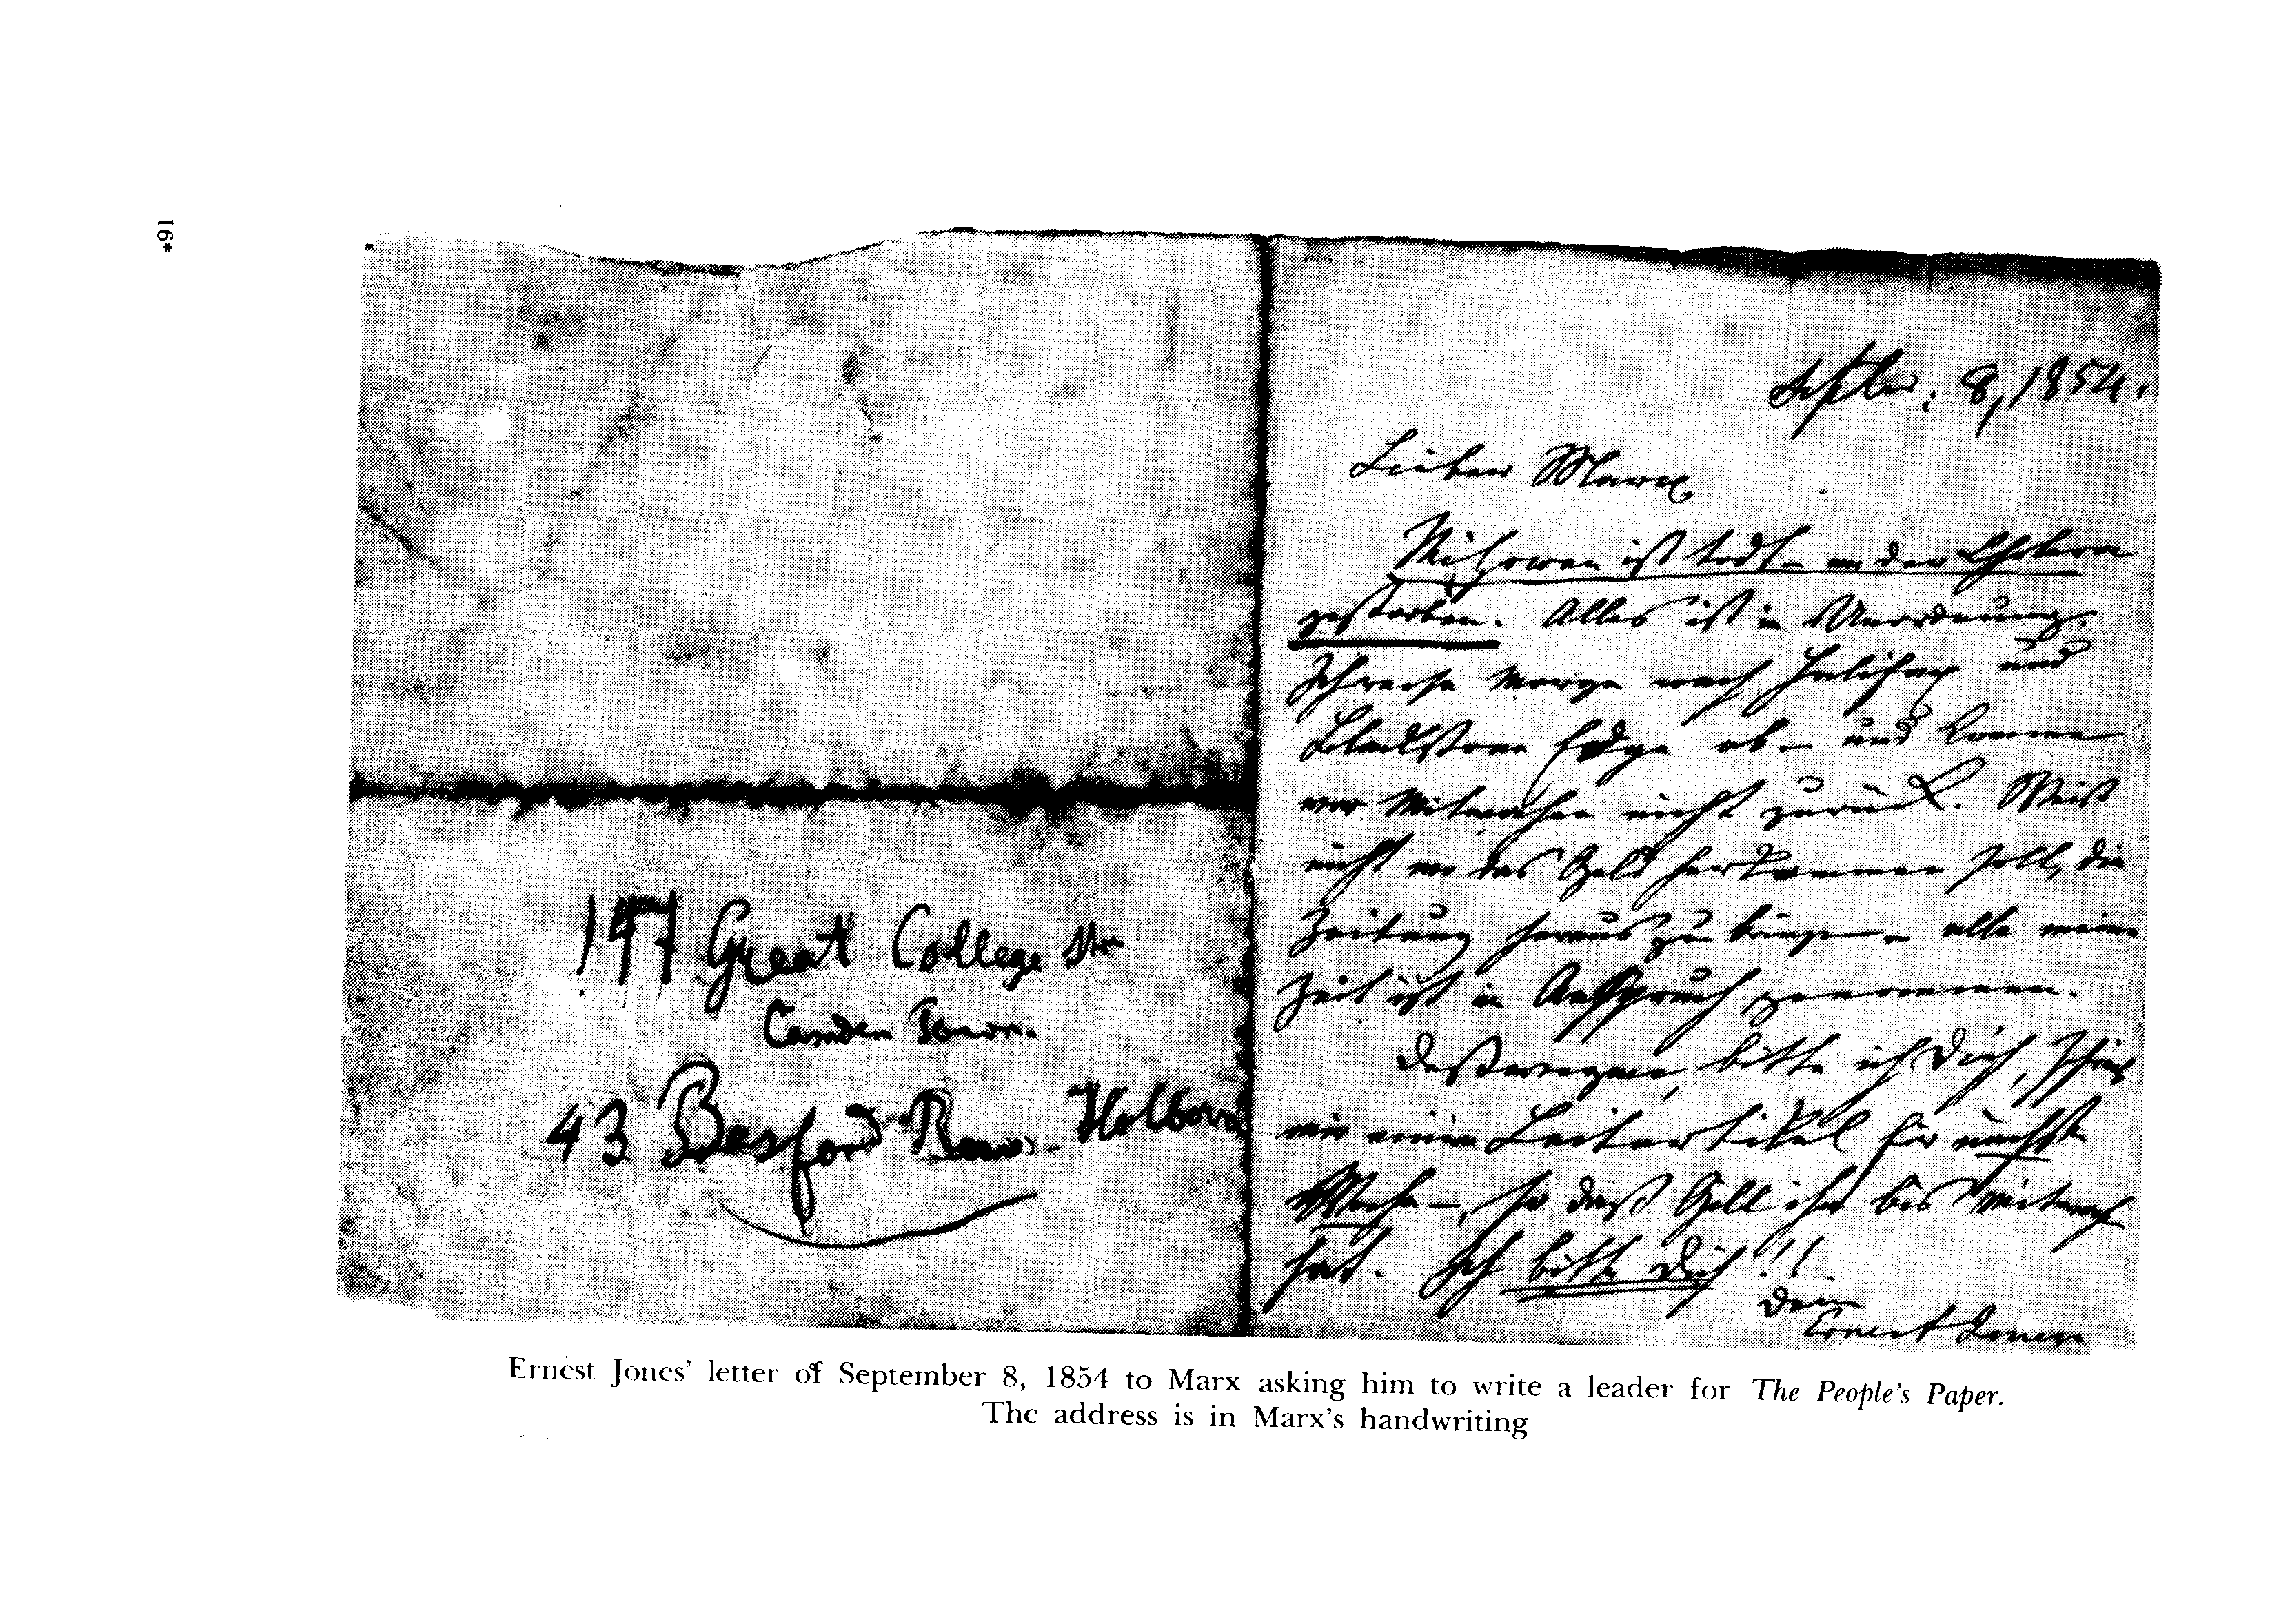 16*
147 Great College Str
Camden Town.
43 Besford Row. Holborn
Septber: 8, 1854.
Lieber Marx
ist todt – an der Cholera
gestorben. Alles ist in Unordnung.
Ich reise Morgen nach Halifax und
Edge ab – und komme
vor Mitwochen nicht zurück. Weiß
nicht wo das Geld herkommen soll, die
Zeitung heraus zu bringen – alle meine
Zeit ist in Anspruch genommen.
Deßwegen, bitte ich Dich, schreib
mir einen Leitartikel für nächste
Woche –, so daß Gill ihn bis Mitwoch
hat. Ich bitte Dich!!
Dein
Ernest Jones
Ernest Jones' letter of September 8, 1854 to Marx asking him to write a leader for The People's Paper.
The address is in Marx's handwriting